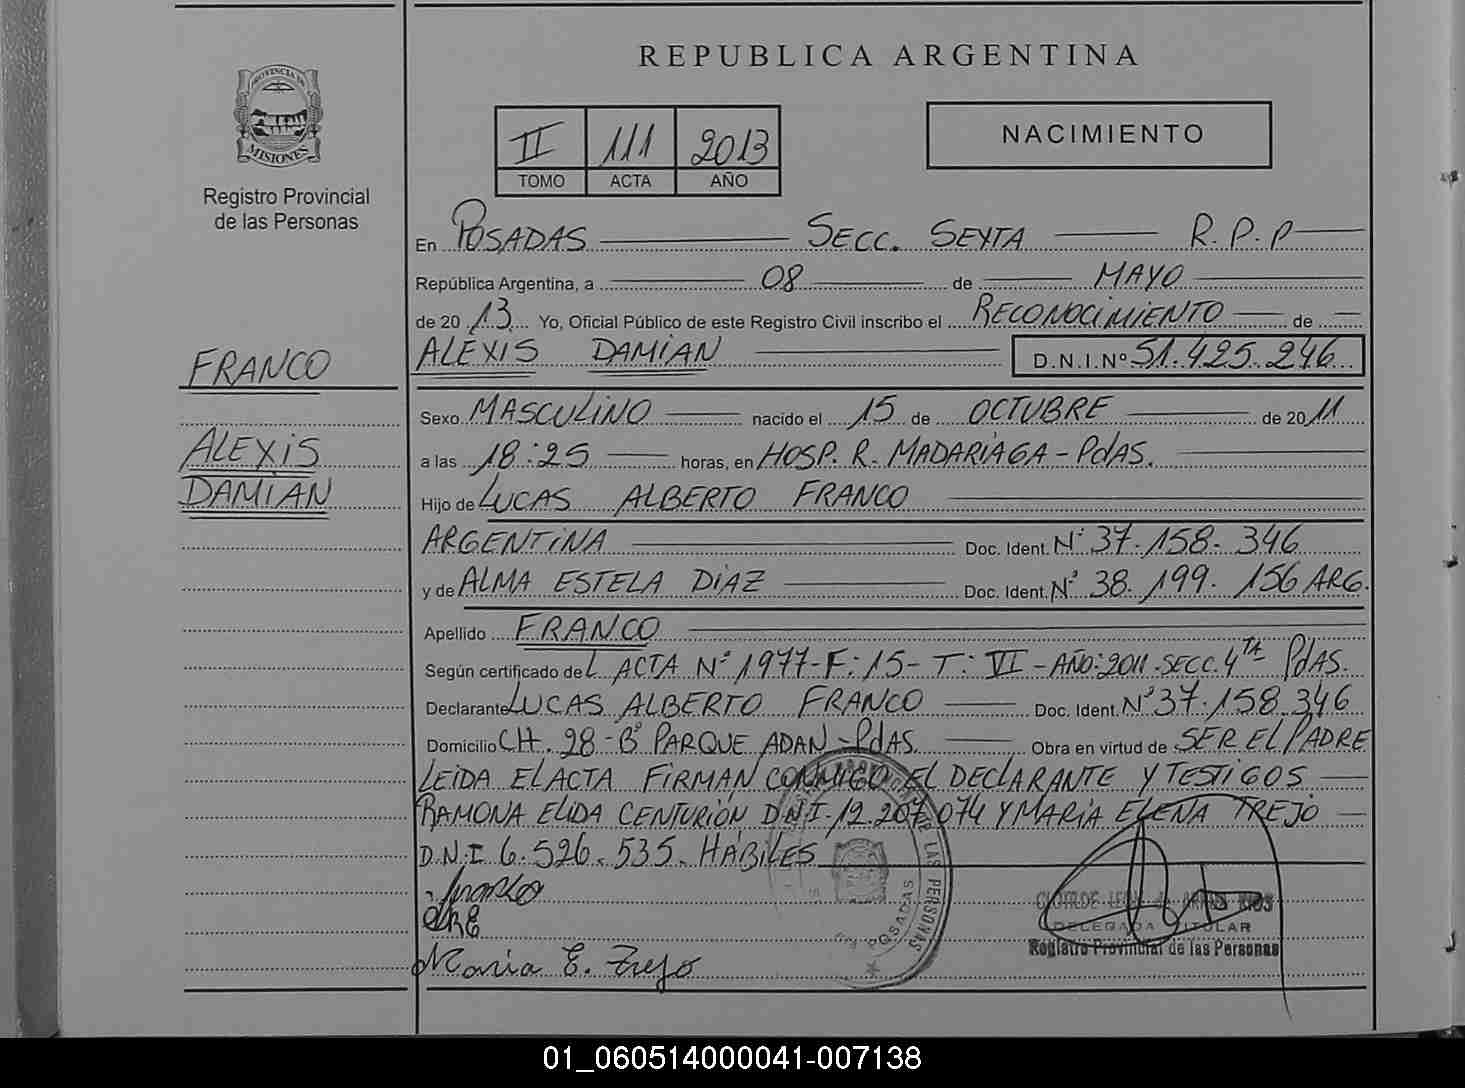 REPUBLICA ARGENTINA
PROVINCIA DE
MISIONES
Registro Provincial
de las Personas
II 111 2013
TOMO ACTA AÑO
NACIMIENTO
En POSADAS SECC. SEXTA R.P.P
República Argentina, a 08 de MAYO
de 20 13 Yo, Oficial Público de este Registro Civil inscribo el RECONOCIMIENTO de
ALEXIS DAMIAN D.N.I.Nº 51.425.246
FRANCO
ALEXIS
DAMIAN
Sexo MASCULINO nacido el 15 de OCTUBRE de 2011
a las 18:25 horas, en HOSP. R. MADARIAGA - PdAS.
Hijo de LUCAS ALBERTO FRANCO
ARGENTINA Doc. Ident. Nº 37.158.346
y de ALMA ESTELA DIAZ Doc. Ident. Nº 38.199.156 ARG.
Apellido FRANCO
Según certificado de L ACTA Nº 1977-F:15-T:VI-AÑO:2011.SECC.4TA PdAS.
Declarante LUCAS ALBERTO FRANCO Doc. Ident. Nº 37.158.346
Domicilio CH. 28-Bº PARQUE ADAN-PdAS. Obra en virtud de SER EL PADRE
LEIDA EL ACTA FIRMAN CONMIGO EL DECLARANTE Y TESTIGOS
RAMONA ELIDA CENTURIÓN D.N.I-12.207.074 Y MARIA ELENA TREJO
D.N.I 6.526.535. HÁBILES
Franco
Maria E. Trejo
LAS PERSONAS
POSADAS
CLOTILDE
DELEGADA TITULAR
Registro Provincial de las Personas
01_060514000041-007138